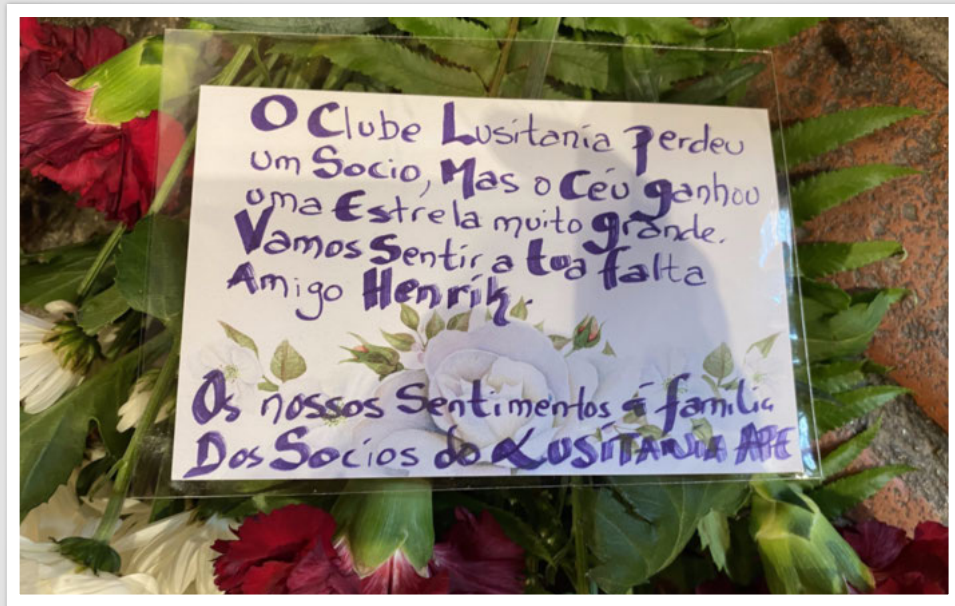 O Clube Lusitania Perdeu
um Socio, Mas o Céu ganhou
uma Estrela muito grande.
Vamos Sentir a tua falta
Amigo Henrik.
Os nossos Sentimentos á familia
Dos Socios do LUSITANIA APE